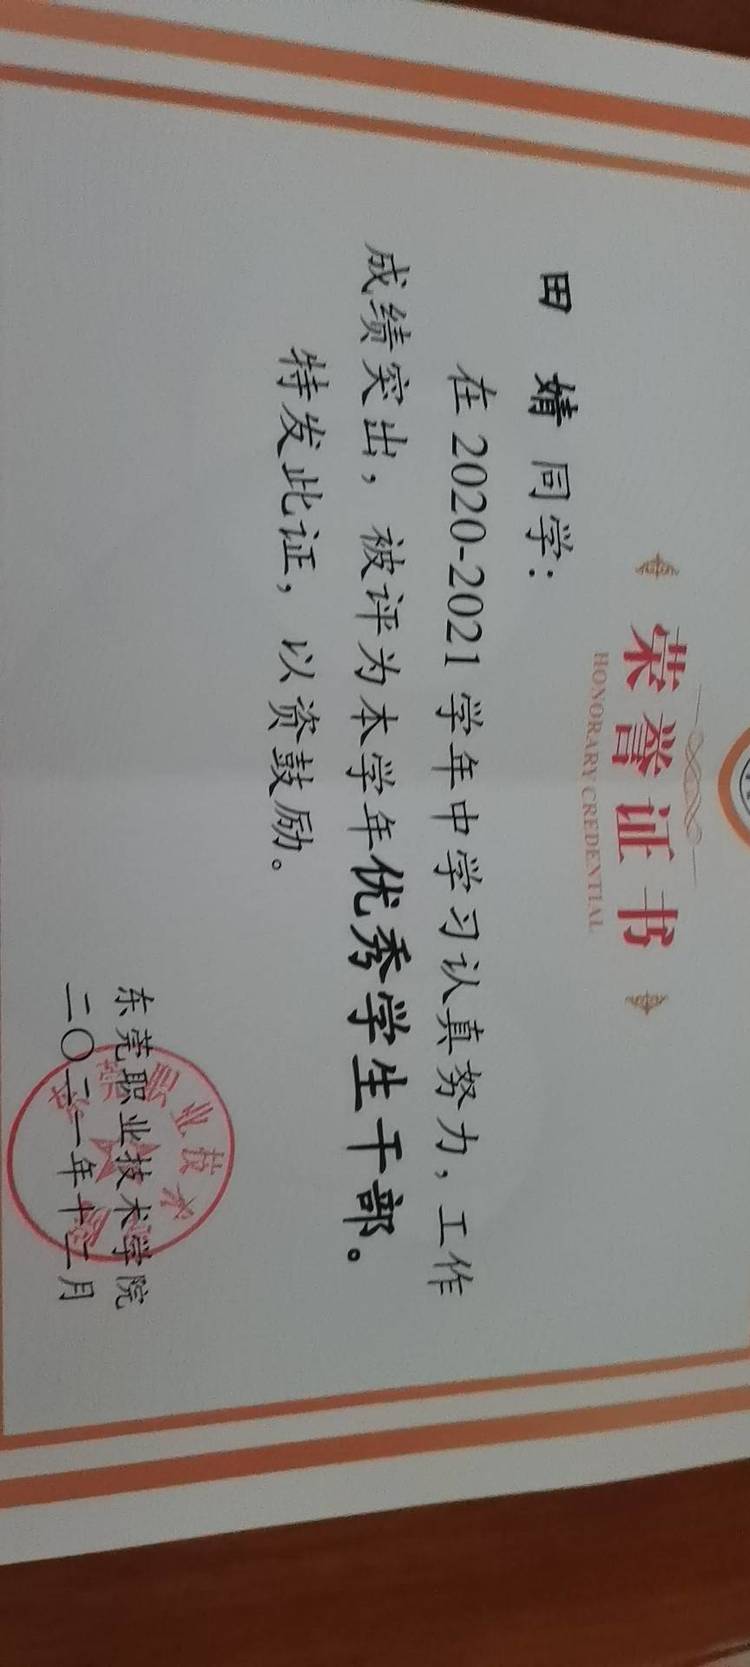 荣誉证书
HONORARY CREDENTIAL
田 婧 同学：
在 2020-2021 学年中学习认真努力，工作
成绩突出，被评为本学年优秀学生干部。
特发此证，以资鼓励。
东莞职业技术学院
二〇二一年十二月